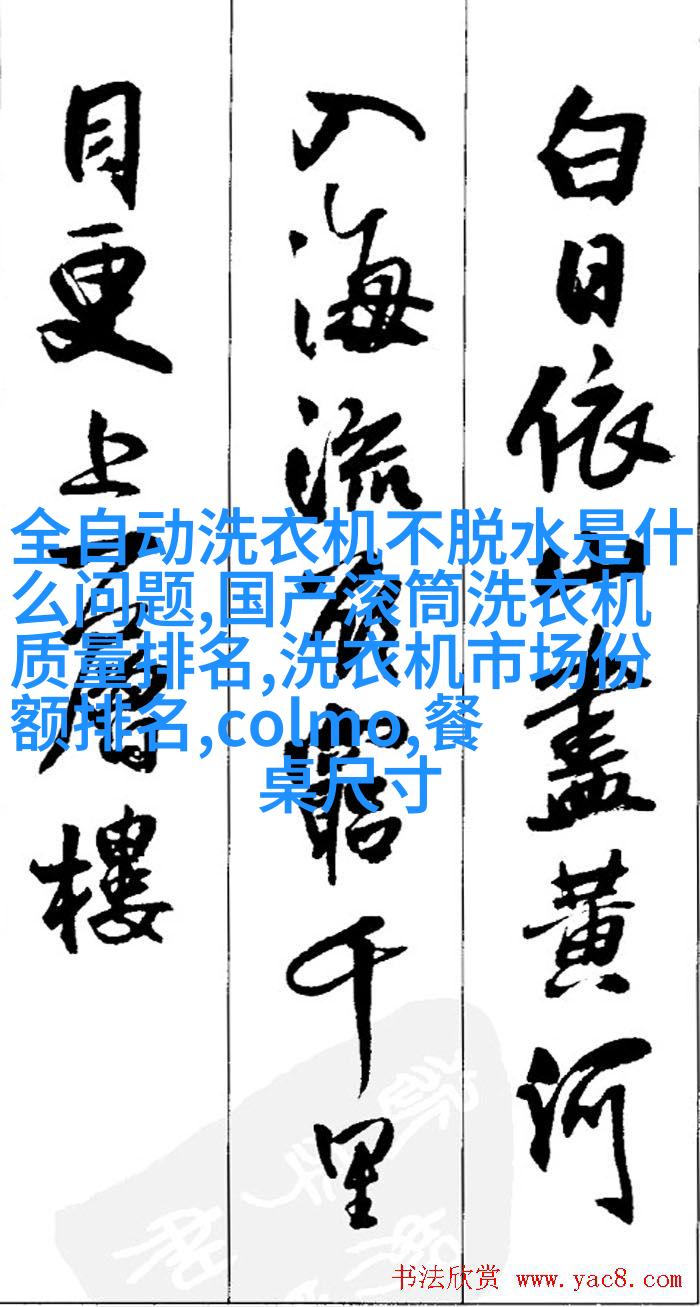 白日依山盡黄河
入海流欲窮千里
目更上一層樓
全自动洗衣机不脱水是什
么问题,国产滚筒洗衣机
质量排名,洗衣机市场份
额排名,colmo,餐
桌尺寸
书法欣赏 www.yac8.com